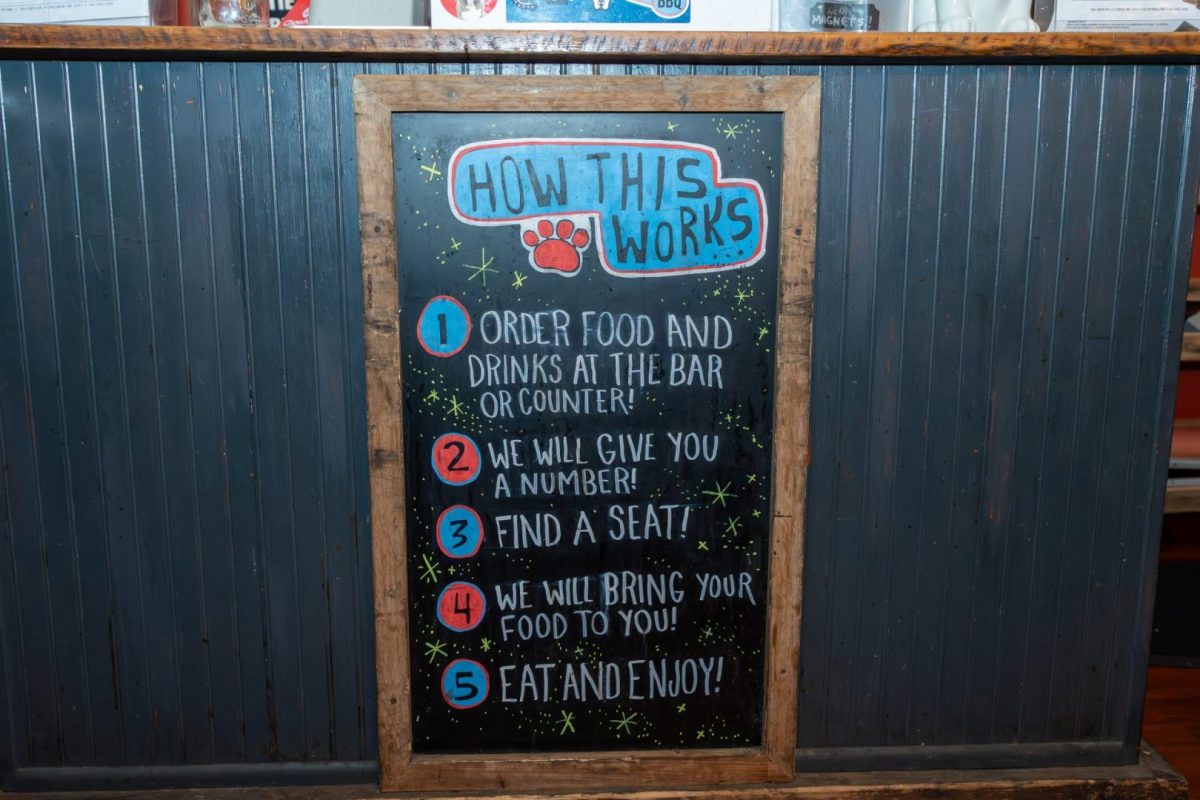 BBQ
MAGNETS!
HOW THIS
WORKS
1 ORDER FOOD AND
DRINKS AT THE BAR
OR COUNTER!
2 WE WILL GIVE YOU
A NUMBER!
3 FIND A SEAT!
4 WE WILL BRING YOUR
FOOD TO YOU!
5 EAT AND ENJOY!